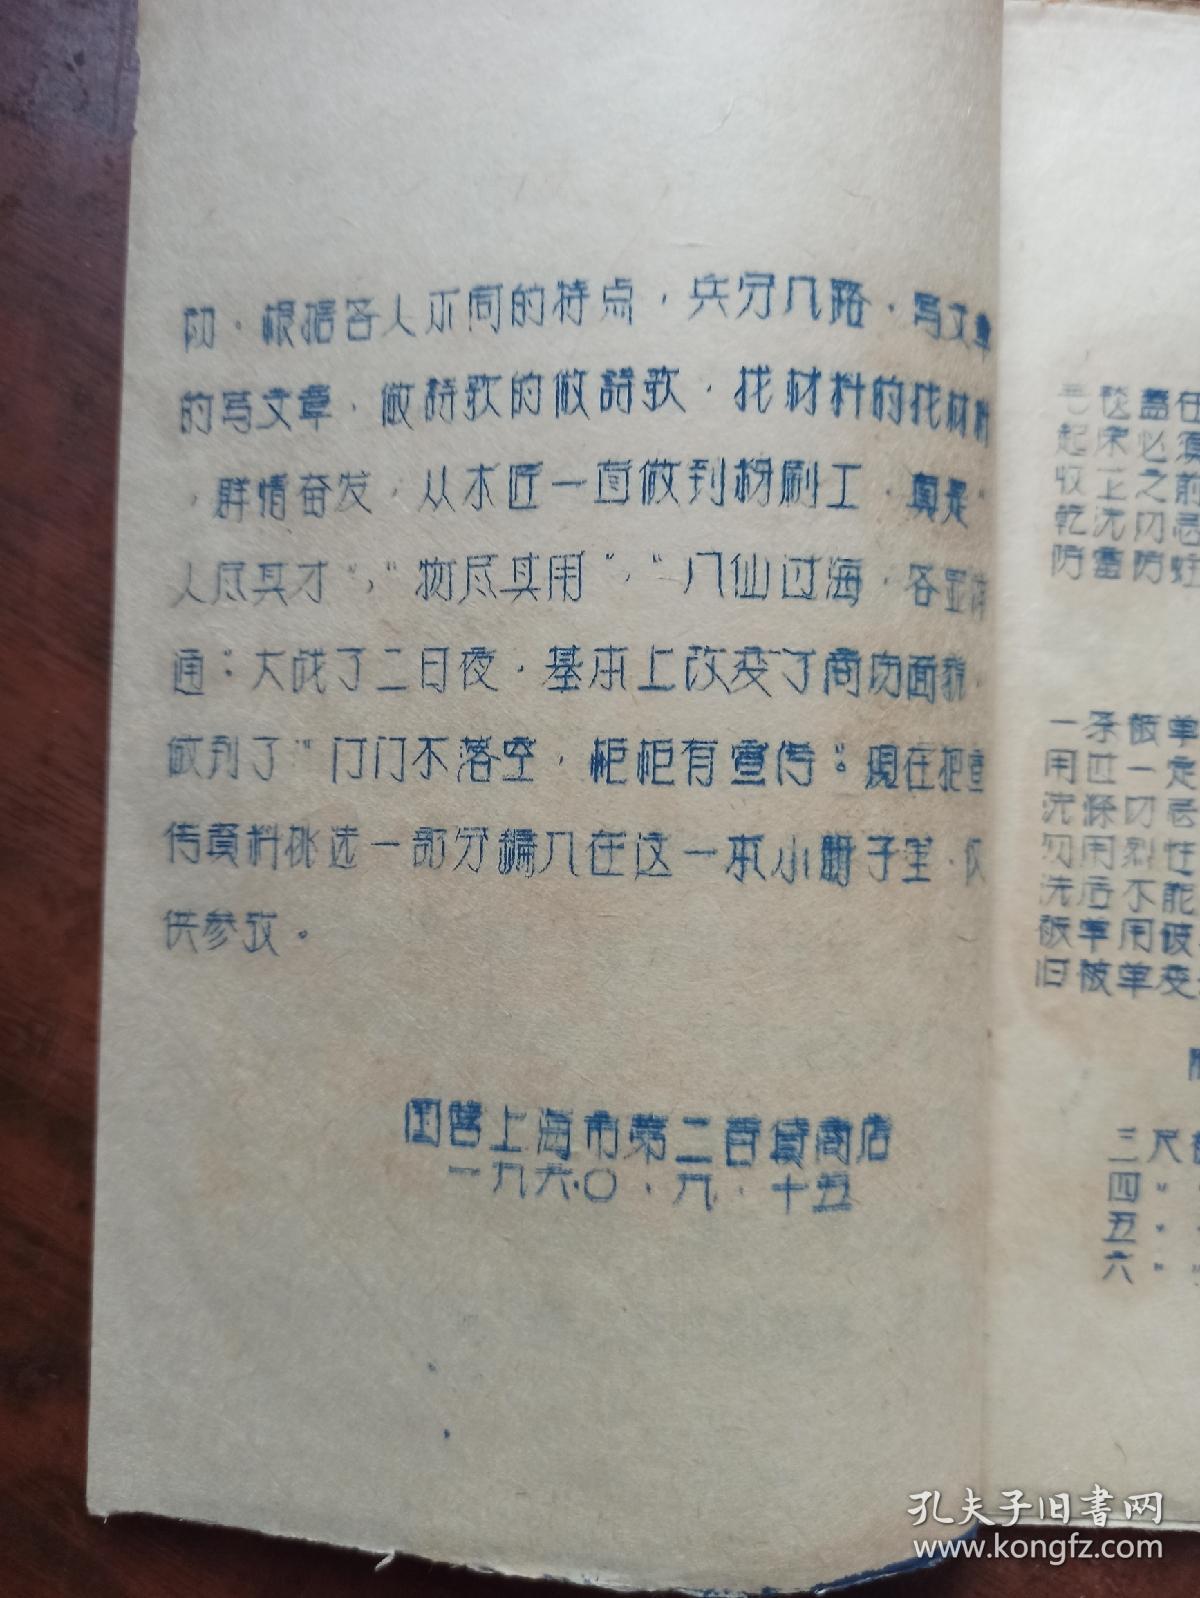 切。根据各人不同的特点，兵分几路，写文章
的写文章，做詩歌的做詩歌，找材料的找材料
，群情奋发，从木匠一直做到粉刷工，真是“
人尽其才”，“物尽其用”，“八仙过海，各显神
通”大战了二日夜，基本上改变了商场面貌，
做到了“门门不落空，柜柜有宣传”。現在把宣
传資料挑选一部分編入在这一本小册子里，仅
供参攷。
国营上海市第二百貨商店
一九六〇．九．十五
毛毯盖在
起床必須
收藏之前
乾洗切忌
防霉防蛀
一条被单
用过一定
洗滌切忌
勿用烈性
洗后不能
被单用破
旧被单变
三尺
四〃
五〃
六〃〃
孔夫子旧書网
www.kongfz.com